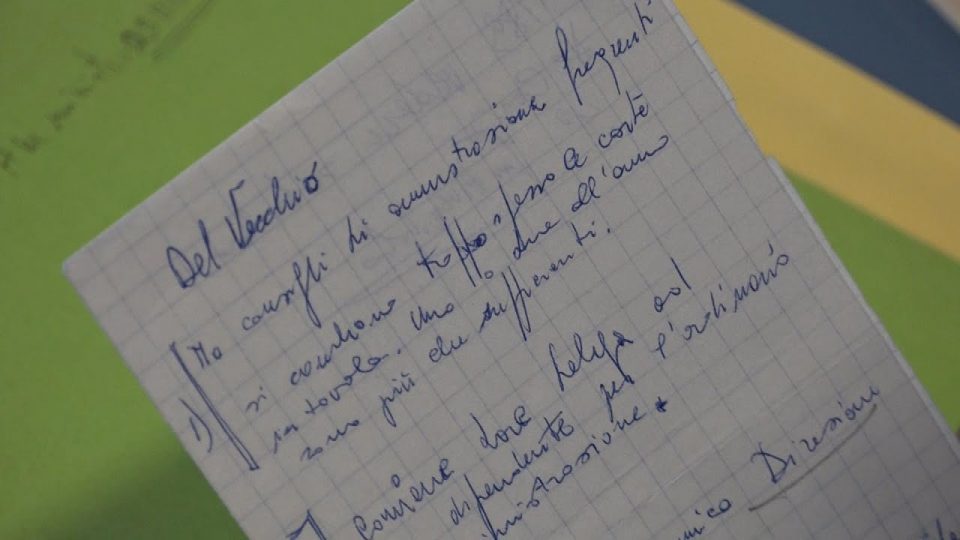 Del Vecchio
1) No consigli di amministrazione frequenti
si cambiano troppo spesso le carte
in tavola. Uno o due all'anno
sono più che sufficienti.
Conviene dare delega ad
dipendente per l'ordinaria
ministrazione
unico Direzione